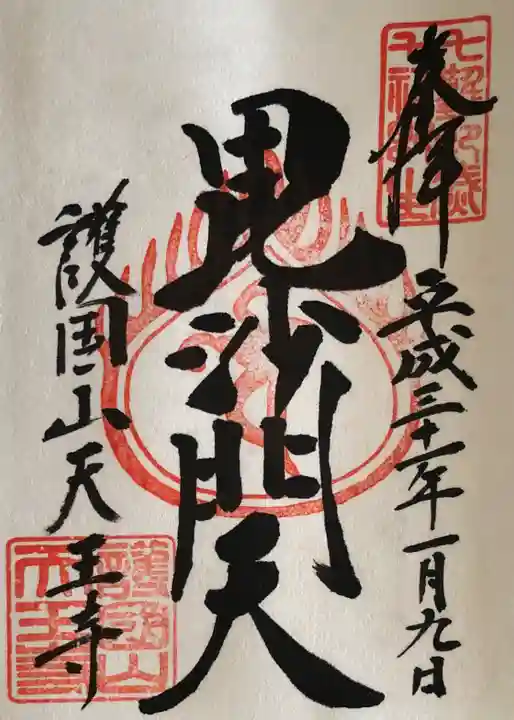 奉拝
平成三十一年一月九日
毘沙門天
護国山天王寺
護国山
天王寺